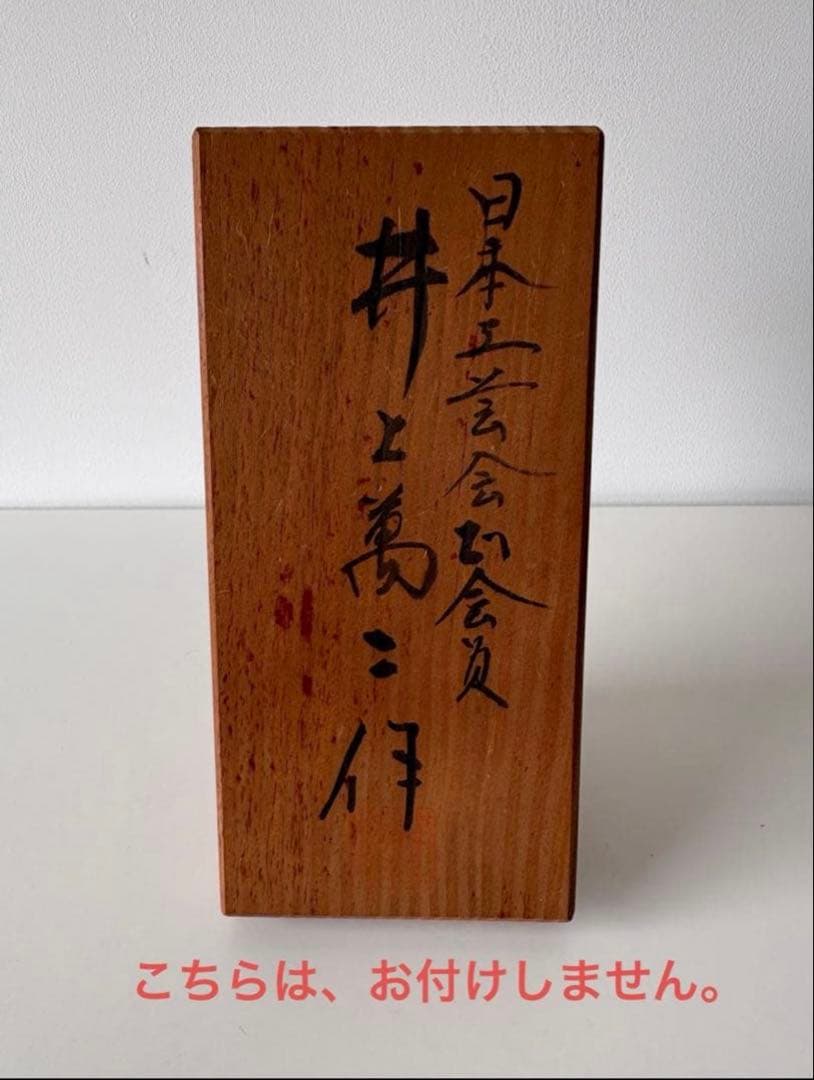 日本工芸会正会員
井上萬二作
こちらは、お付けしません。